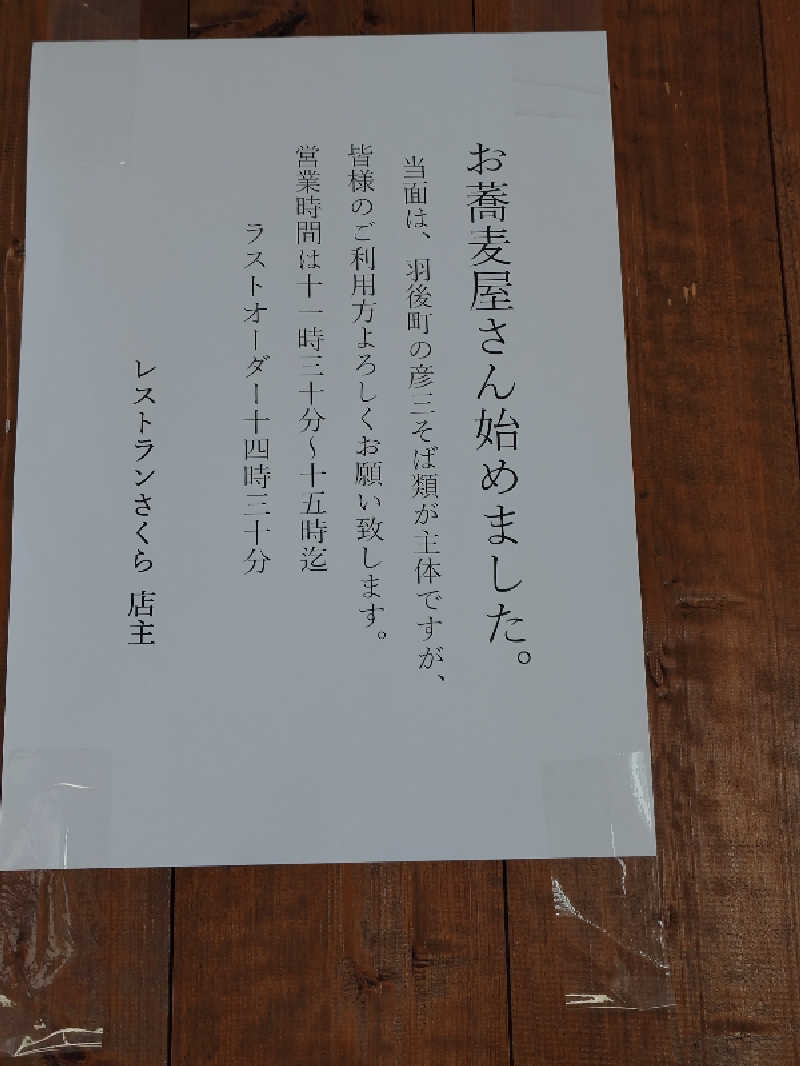 お蕎麦屋さん始めました。
当面は、羽後町の彦三そば類が主体ですが、
皆様のご利用方よろしくお願い致します。
営業時間は十一時三十分~十五時迄
ラストオーダー十四時三十分
レストランさくら 店主